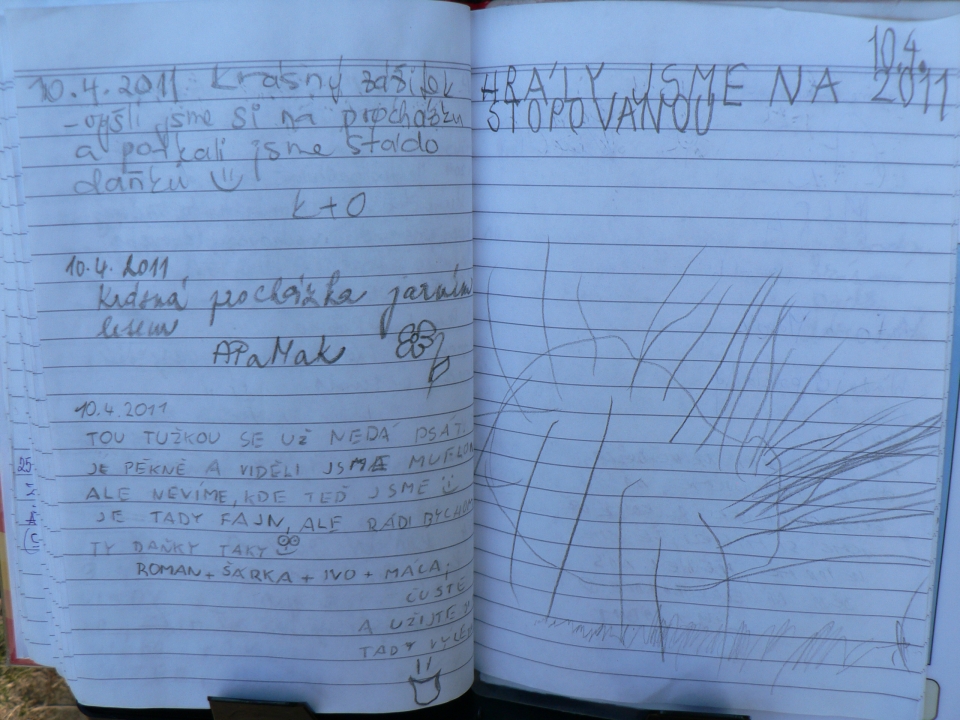 10.4.2011 Krásný zážitek
- vyšli jsme si na procházku
a potkali jsme stádo
daňků
K+O
10.4.2011
Krásná procházka jarním
lesem
APaMak
10.4.2011
TOU TUŽKOU SE UŽ NEDÁ PSÁT.
JE PĚKNĚ A VIDĚLI JSME MUFLON
ALE NEVÍME, KDE TEĎ JSME
JE TADY FAJN, ALE RÁDI BYCHOM
TY DAŇKY TAKY
ROMAN + ŠÁRKA + IVO + MÁCA;
ČUSTE
A UŽIJTE
TADY
25
10.4.
2011
HRÁLY JSME NA
STOPOVANOU